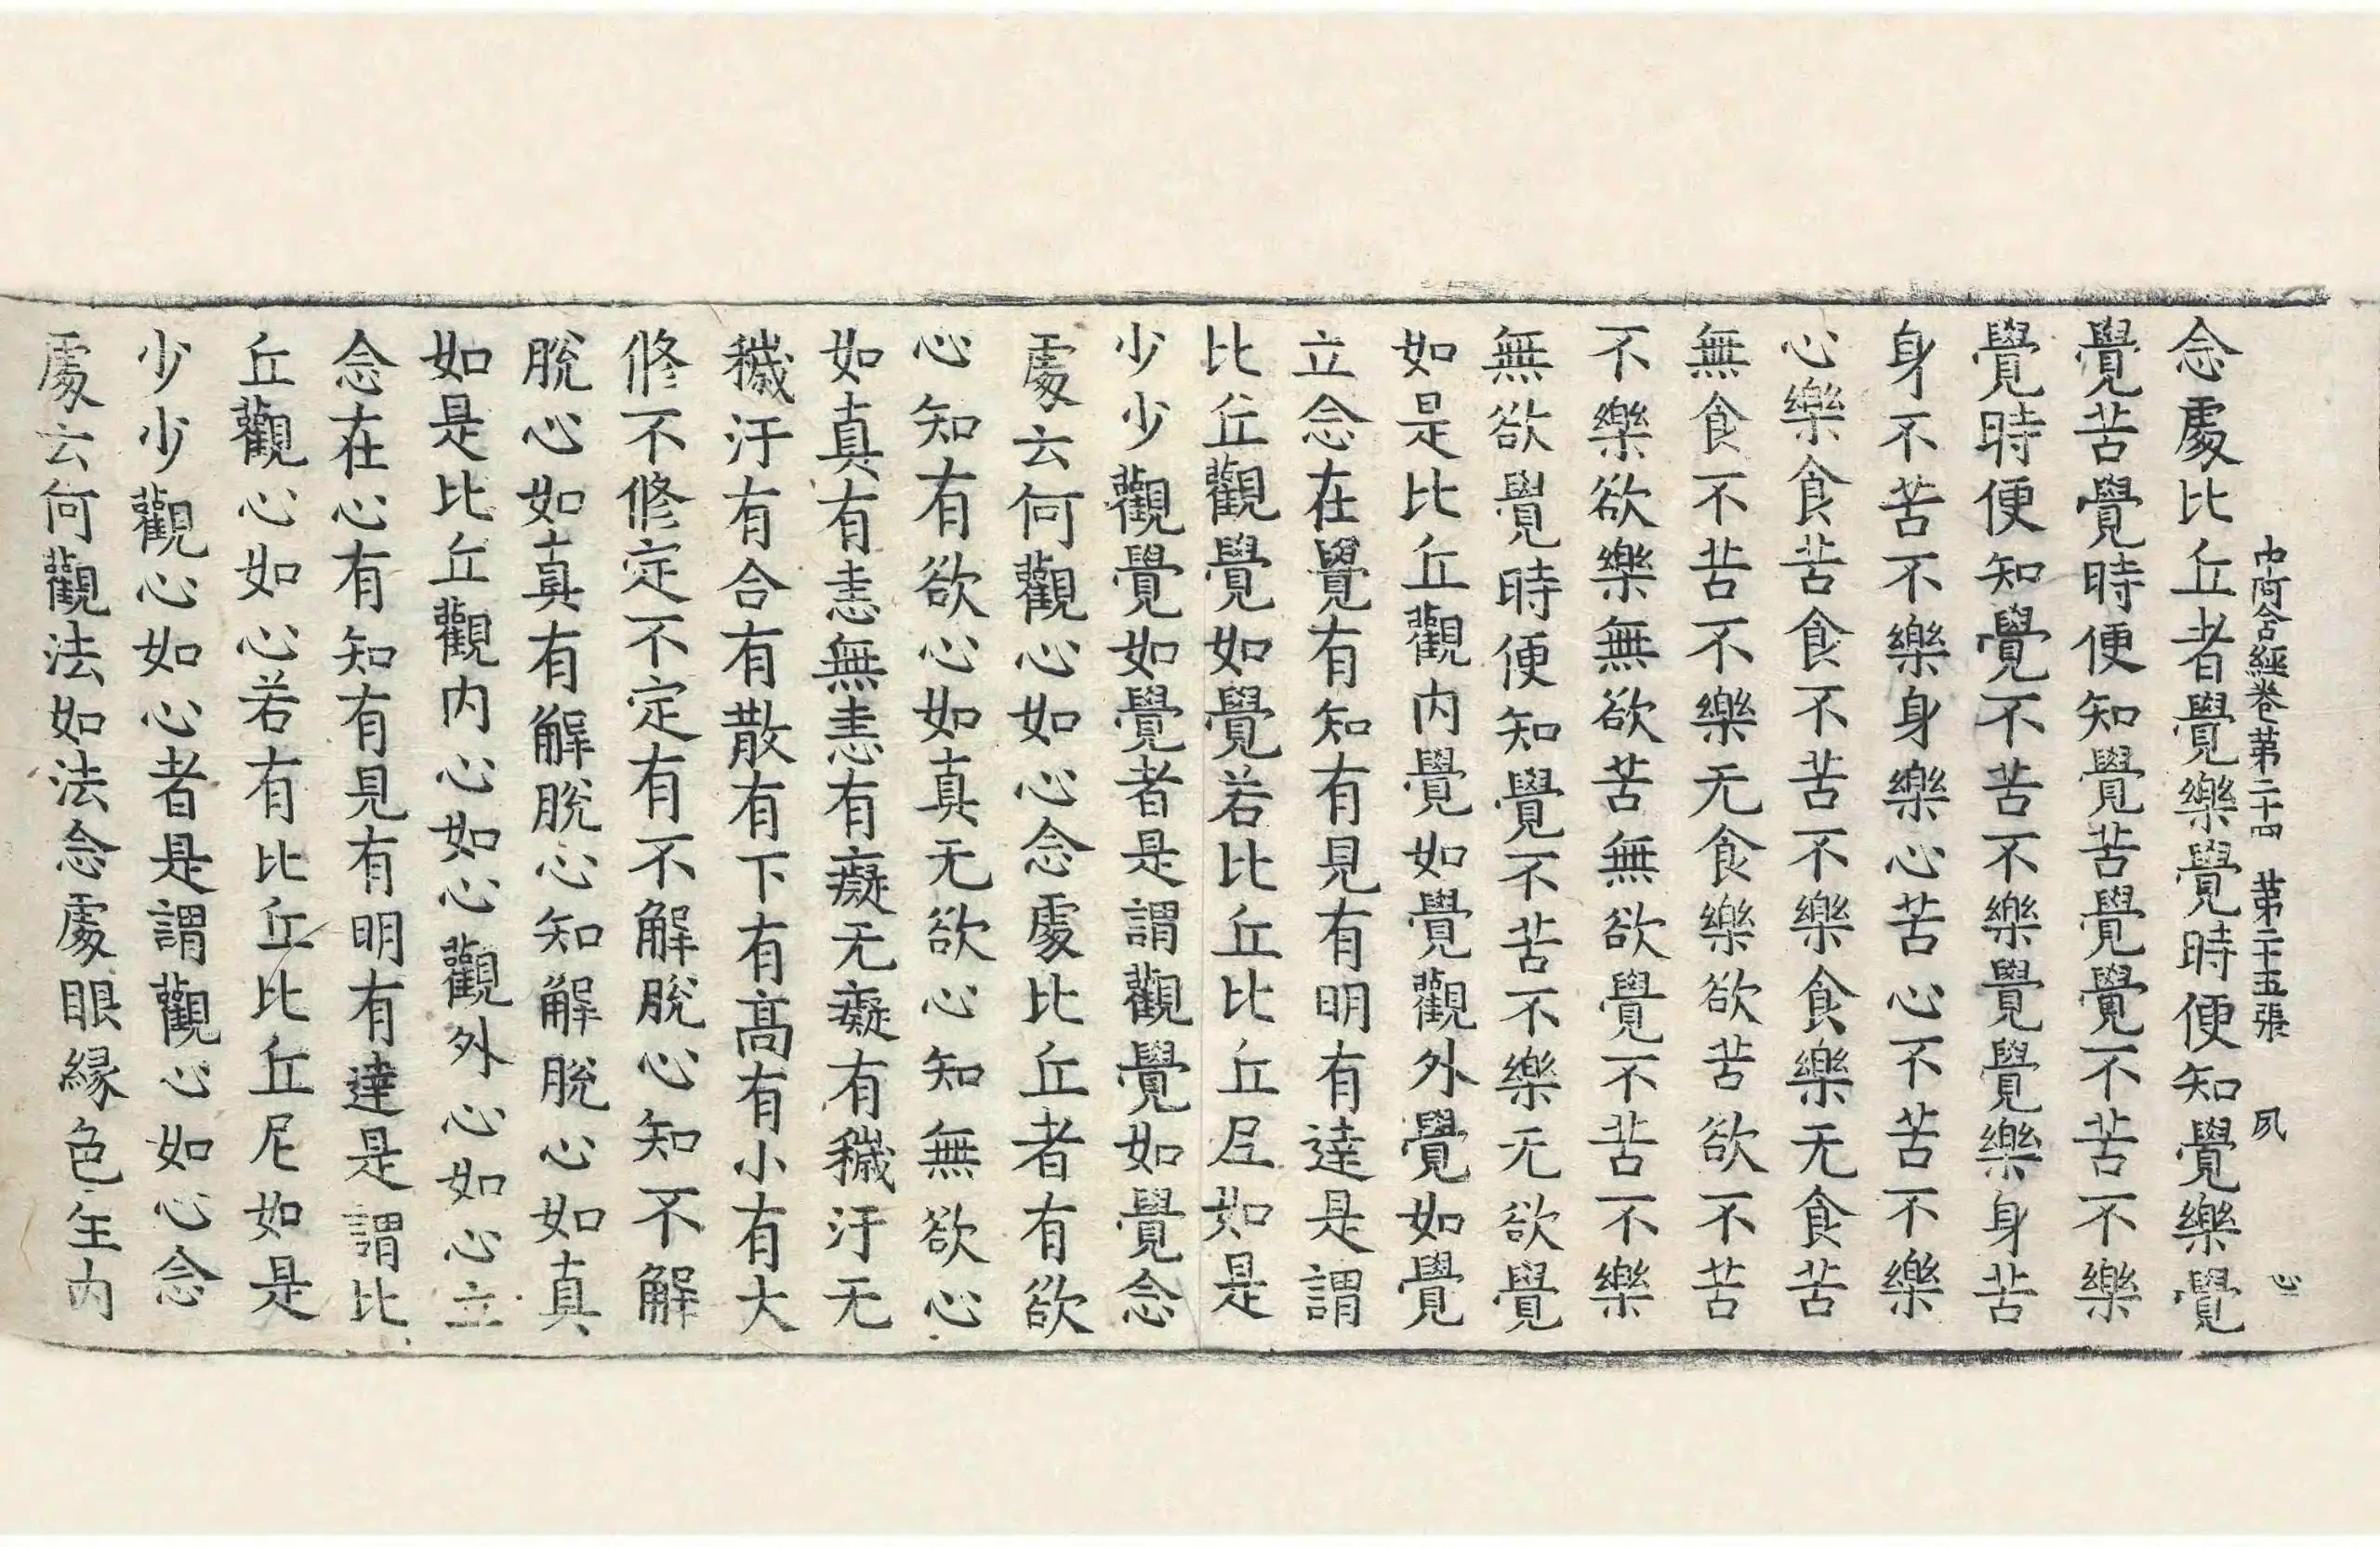 中阿含經卷第二十四　第二十五張　夙
念處比丘者覺樂覺時便知覺樂覺
覺苦覺時便知覺苦覺覺不苦不樂
覺時便知覺不苦不樂覺覺樂身苦
身不苦不樂身樂心苦心不苦不樂
心樂食苦食不苦不樂食樂无食苦
無食不苦不樂无食樂欲苦欲不苦
不樂欲樂無欲苦無欲覺不苦不樂
無欲覺時便知覺不苦不樂无欲覺
如是比丘觀内覺如覺觀外覺如覺
立念在覺有知有見有明有達是謂
比丘觀覺如覺若比丘比丘尼如是
少少觀覺如覺者是謂觀覺如覺念
處云何觀心如心念處比丘者有欲
心知有欲心如真无欲心知無欲心
如真有恚無恚有癡无癡有穢汙无
穢汙有合有散有下有高有小有大
修不修定不定有不解脫心知不解
脫心如真有解脫心知解脫心如真
如是比丘觀内心如心觀外心如心立
念在心有知有見有明有達是謂比
丘觀心如心若有比丘比丘尼如是
少少觀心如心者是謂觀心如心念
處云何觀法如法念處眼緣色生内